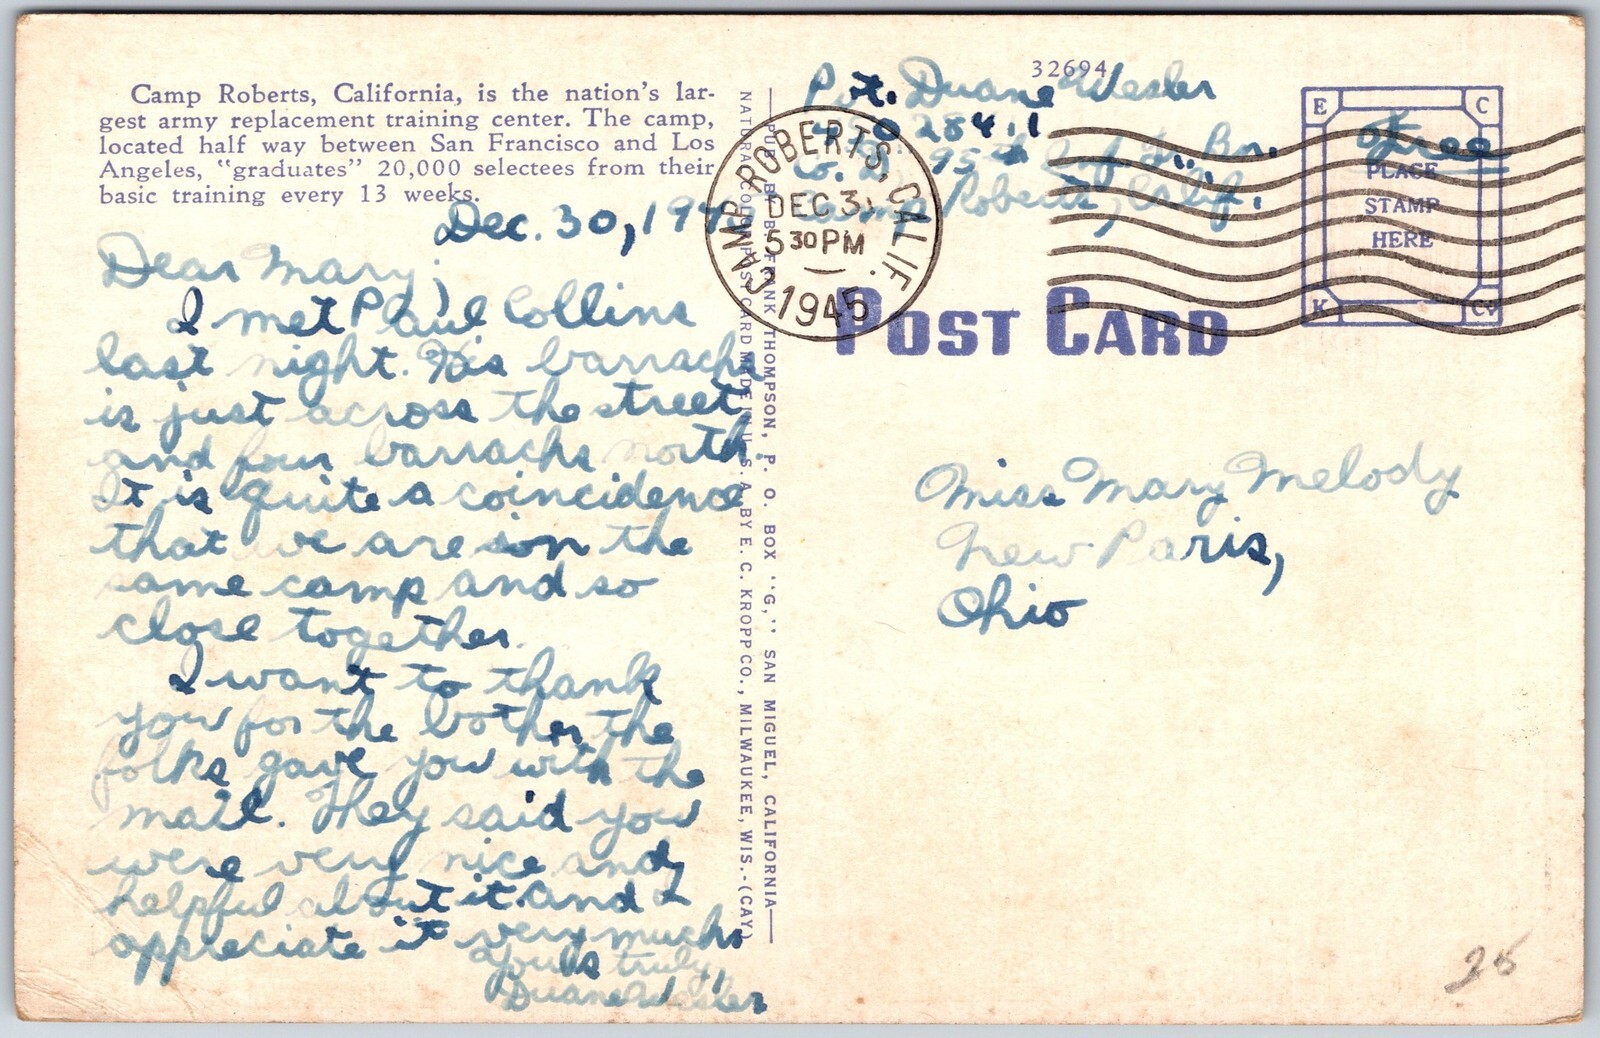 Camp Roberts, California, is the nation's lar-
gest army replacement training center. The camp,
located half way between San Francisco and Los
Angeles, "graduates" 20,000 selectees from their
basic training every 13 weeks.
Dec. 30, 194
Dear Mary;
I met Paul Collins
last night. His barracks
is just across the street
and four barracks north.
It is quite a coincidence
that we are in the
same camp and so
close together.
I want to thank
you for the bother the
folks gave you with the
mail. They said you
were very nice and
helpful about it and I
appreciate it very much.
Yours truly,
Duane Wesler
NATURAL COLOR POST CARD MADE IN U. S. A. BY E. C. KROPP CO., MILWAUKEE, WIS.-(CAY)
PUB. BY BURBANK THOMPSON, P. O. BOX "G," SAN MIGUEL, CALIFORNIA
32694
Pvt. Duane Wesler
28411
Co. 95th Inf. Tr. Bn.
Camp Roberts, Calif.
CAMP ROBERTS, CALIF.
DEC 3
5 30 PM
1945
Free
E C
PLACE
STAMP
HERE
K Co
POST CARD
Miss Mary Melody
New Paris,
Ohio
25